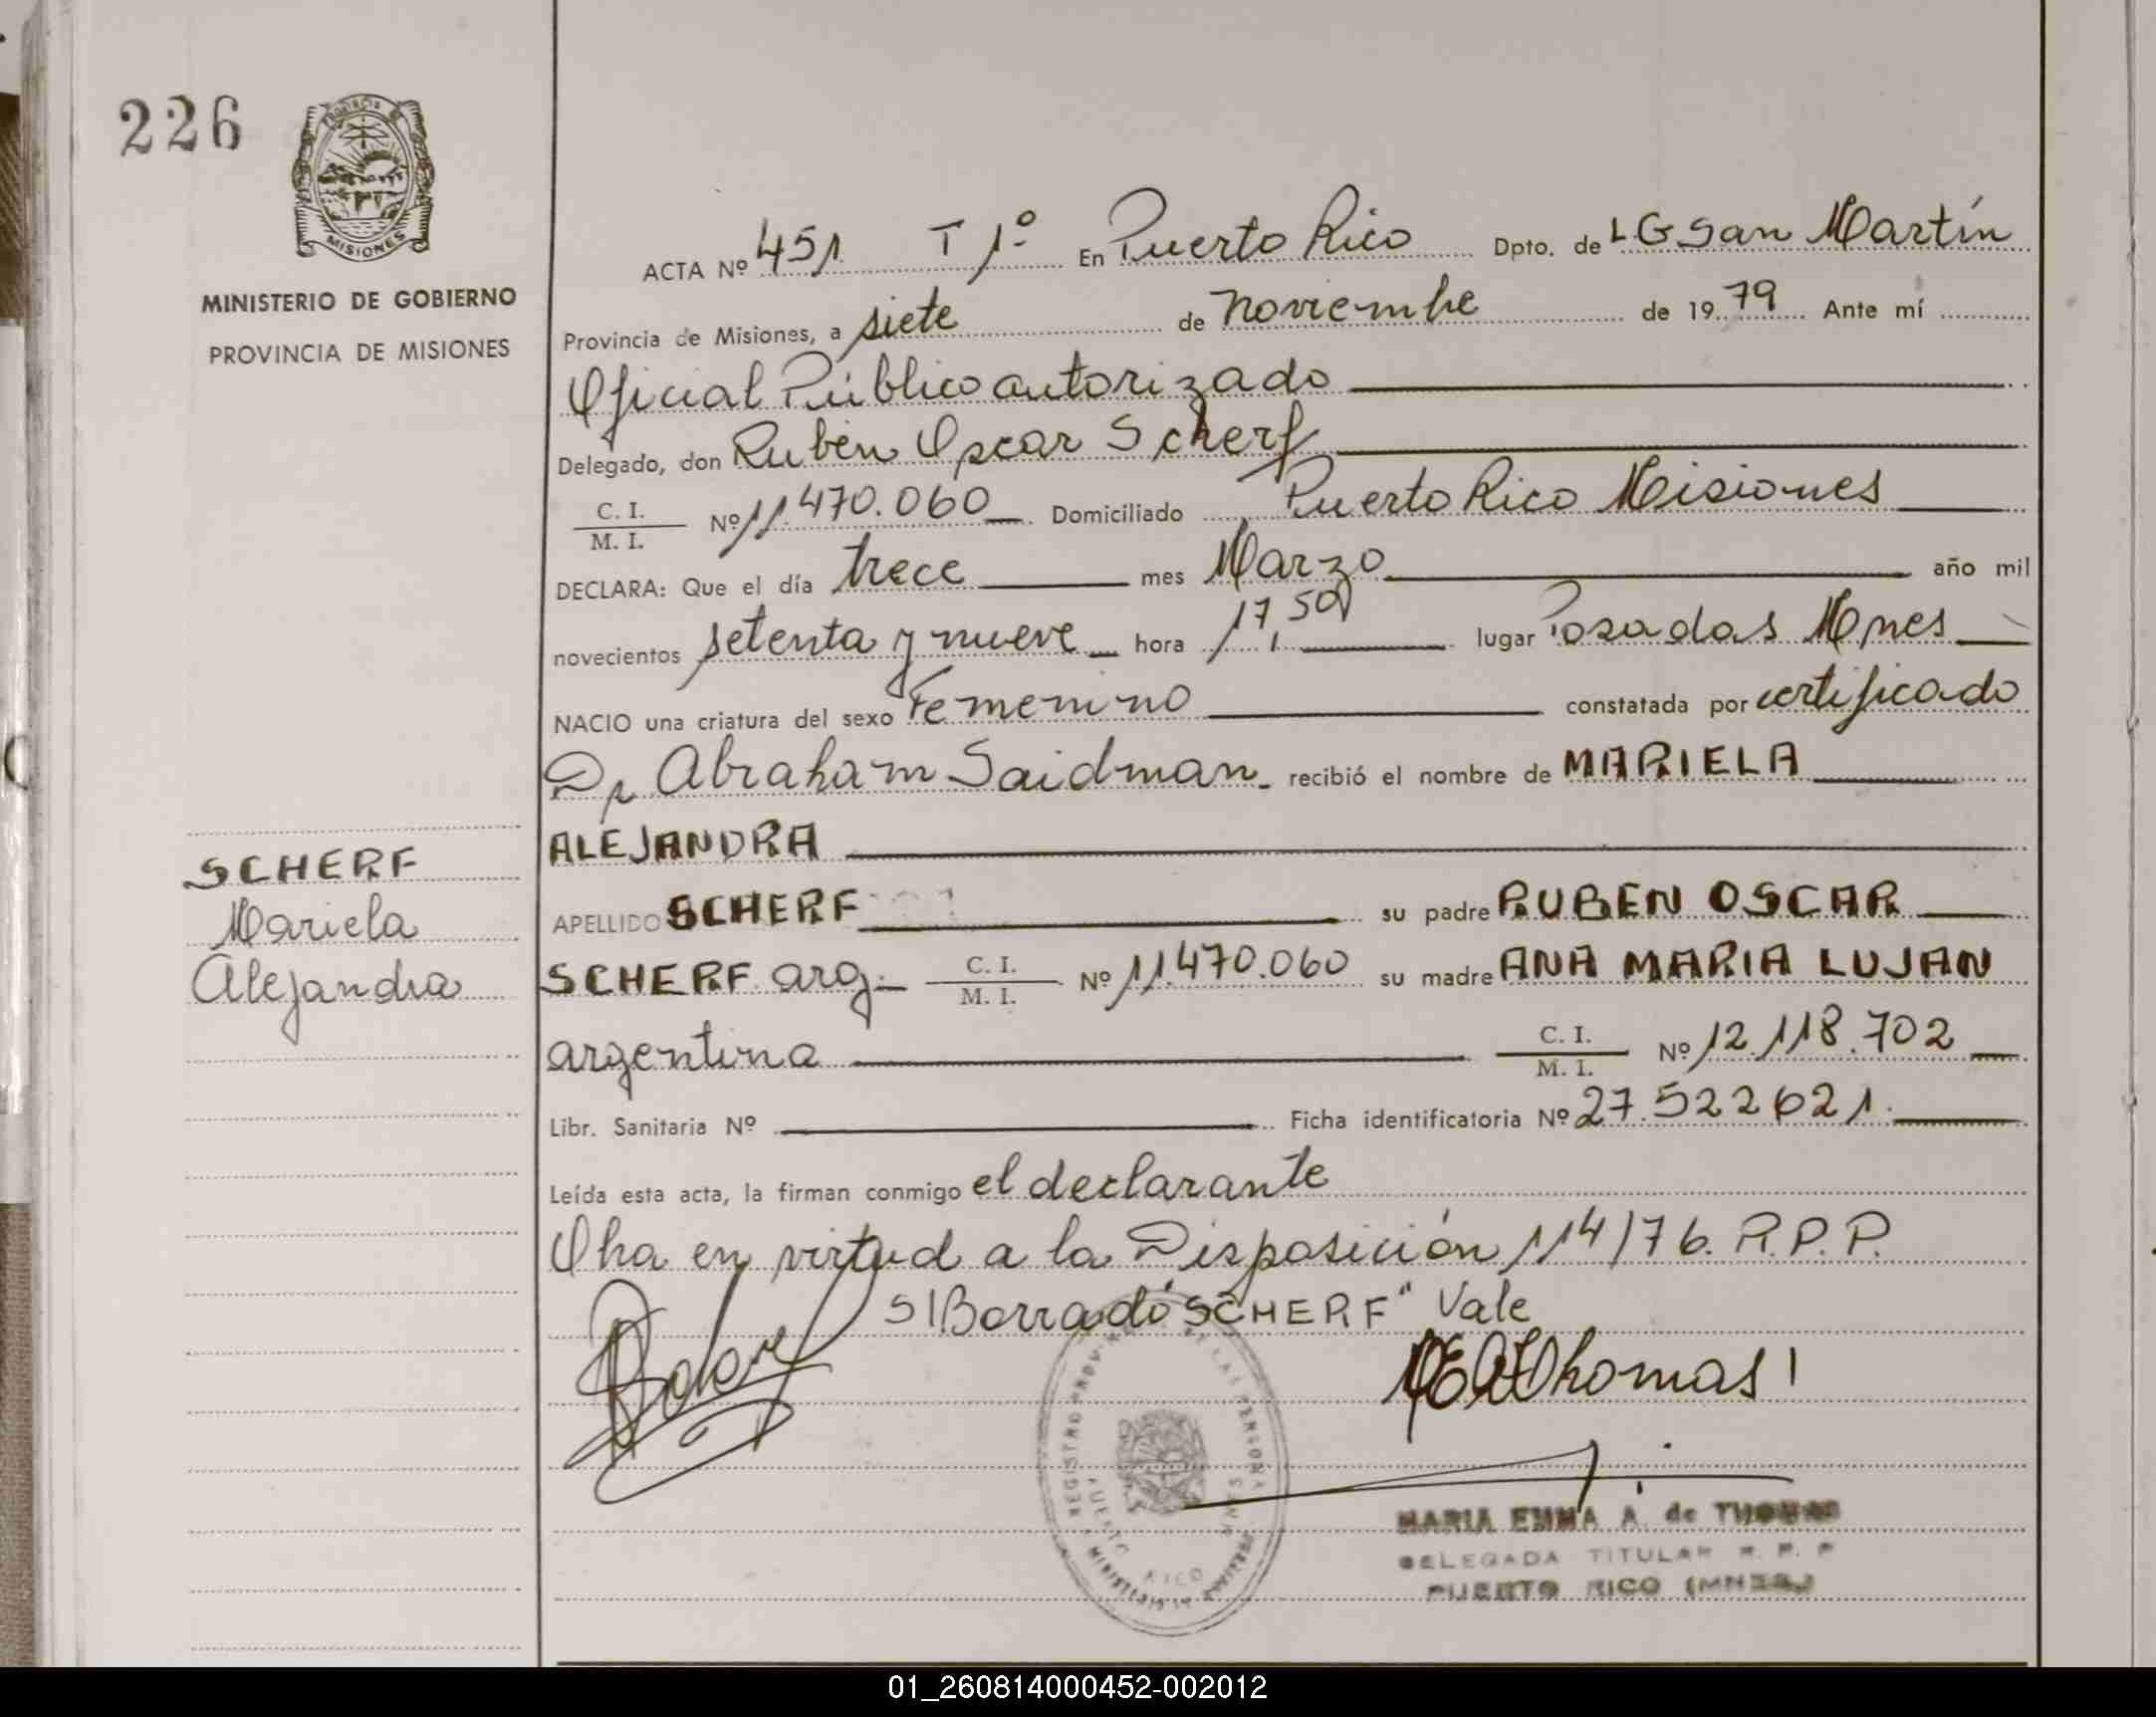 226
PROVINCIA
MISIONES
MINISTERIO DE GOBIERNO
PROVINCIA DE MISIONES
SCHERF
Mariela
Alejandra
ACTA Nº 451 T 1º En Puerto Rico Dpto. de LG San Martín
Provincia de Misiones, a siete de noviembre de 1979 Ante mí
Oficial Público autorizado
Delegado, don Rubén Oscar Scherf
C. I. / M. I. Nº 11.470.060 Domiciliado Puerto Rico Misiones
DECLARA: Que el día trece mes Marzo año mil
novecientos setenta y nueve hora 17,50 lugar Posadas Mnes
NACIO una criatura del sexo Femenino constatada por certificado
Dr Abraham Saidman recibió el nombre de MARIELA
ALEJANDRA
APELLIDO SCHERF su padre RUBEN OSCAR
SCHERF arg.- C. I. / M. I. Nº 11.470.060 su madre ANA MARIA LUJAN
argentina C. I. / M. I. Nº 12.118.702
Libr. Sanitaria Nº Ficha identificatoria Nº 27.522621.
Leída esta acta, la firman conmigo el declarante
en virtud a la Disposición 114/76. R.P.P.
S/Borrado "SCHERF" Vale
MEAThomas
REGISTRO PERSONAS
PUERTO RICO MNES
MARIA EMMA A. de THOMAS
DELEGADA TITULAR R. P. P
PUERTO RICO (MNES.)
01_260814000452-002012